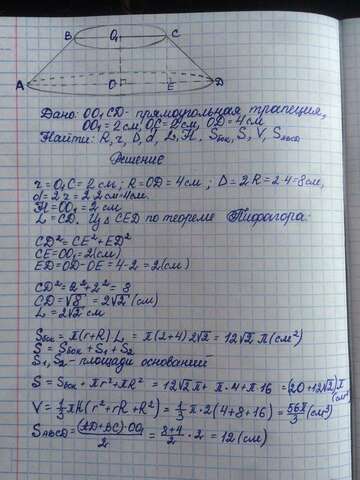 B O₁ C
A O E D
Дано: OO₁CD - прямоугольная трапеция,
OO₁ = 2 см, O₁C = 2 см, OD = 4 см
Найти: R, r, D, d, L, H, Sбок, S, V, Sавсд
Решение
r = O₁C = 2 см; R = OD = 4 см; D = 2R = 2·4 = 8см,
d = 2r = 2·2см = 4см.
H = OO₁ = 2 см
L = CD. Из △ CED по теореме Пифагора:
CD² = CE² + ED²
CE = OO₁ = 2(см)
ED = OD - OE = 4 - 2 = 2(см)
CD² = 2² + 2² = 8
CD = √8 = 2√2 (см)
L = 2√2 см
Sбок = π(r+R) L = π(2+4) 2√2 = 12√2 π (см²)
S = Sбок + S₁ + S₂
S₁, S₂ - площади оснований
S = Sбок + πr² + πR² = 12√2 π + π·4 + π·16 = (20 + 12√2)π (см²)
V = 1/3 πH (r² + rR + R²) = 1/3 π·2(4+8+16) = 56π/3 (см³)
SABCD = (AD+BC)·OO₁/2 = 8+4/2 · 2 = 12 (см)